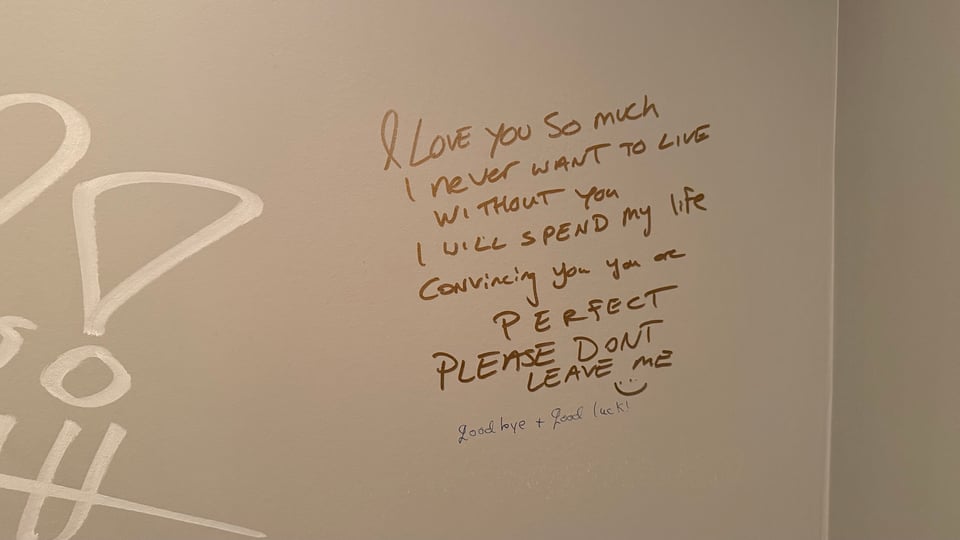 I LOVE YOU SO MUCH
I never WANT TO LIVE
WITHOUT YOU
I WILL SPEND my life
CONVINCING you you are
PERFECT
PLEASE DONT
LEAVE ME
goodbye + good luck!